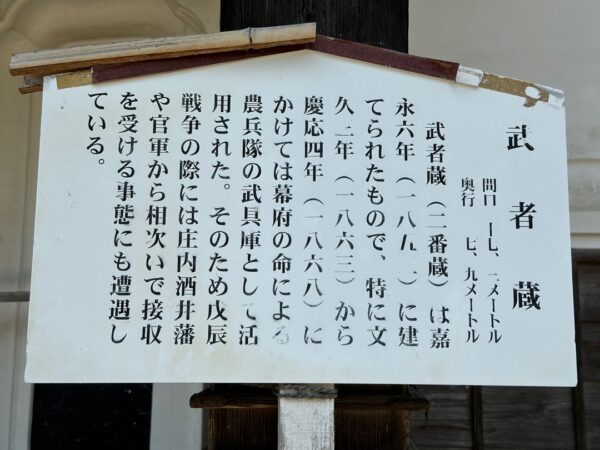 武者蔵
間口 一七、二メートル
奥行 七、九メートル
武者蔵（二番蔵）は嘉
永六年（一八五三）に建
てられたもので、特に文
久三年（一八六三）から
慶応四年（一八六八）に
かけては幕府の命による
農兵隊の武具庫として活
用された。そのため戊辰
戦争の際には庄内酒井藩
や官軍から相次いで接収
を受ける事態にも遭遇し
ている。